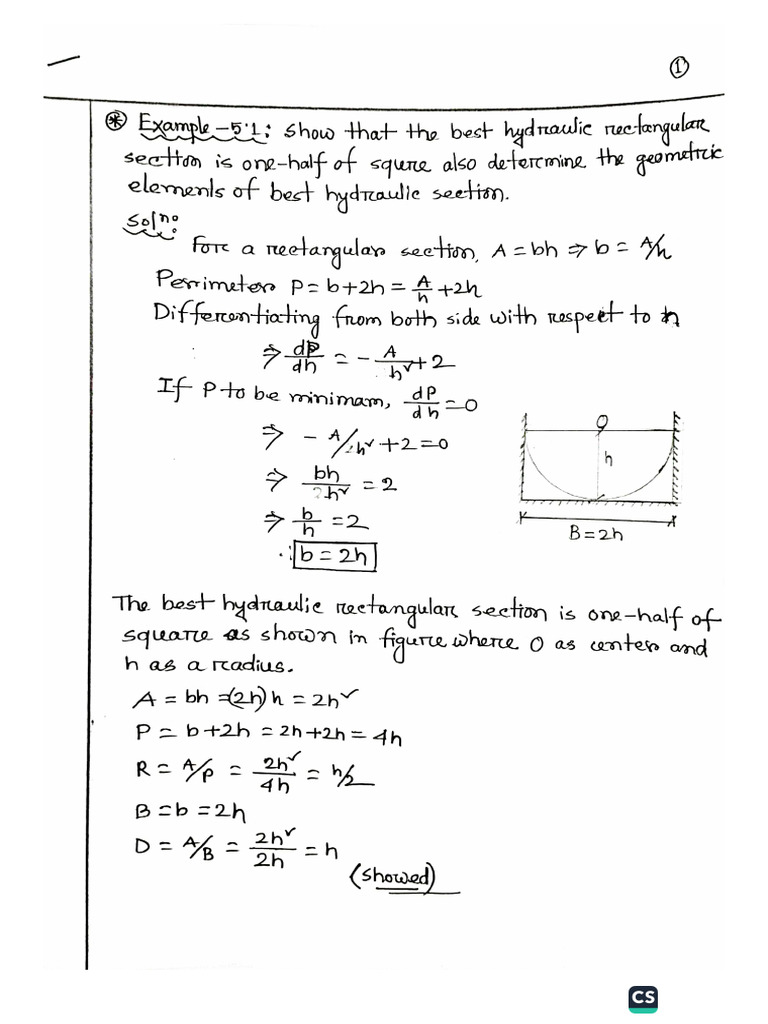 ①
⊛ Example-5.1: Show that the best hydraulic rectangular
section is one-half of squre also determine the geometric
elements of best hydraulic section.
Solno:
For a rectangular section, A = bh ⇒ b = A/h
Perimeter P = b+2h = A/h + 2h
Differentiating from both side with respect to h
⇒ dP/dh = - A/h² + 2
If P to be minimam, dP/dh = 0
⇒ - A/h² + 2 = 0
⇒ bh/h² = 2
⇒ b/h = 2
∴ b = 2h
O
h
B = 2h
The best hydraulic rectangular section is one-half of
square as shown in figure where O as center and
h as a radius.
A = bh = (2h) h = 2h²
P = b+2h = 2h+2h = 4h
R = A/P = 2h²/4h = h/2
B = b = 2h
D = A/B = 2h²/2h = h
(Showed)
CS